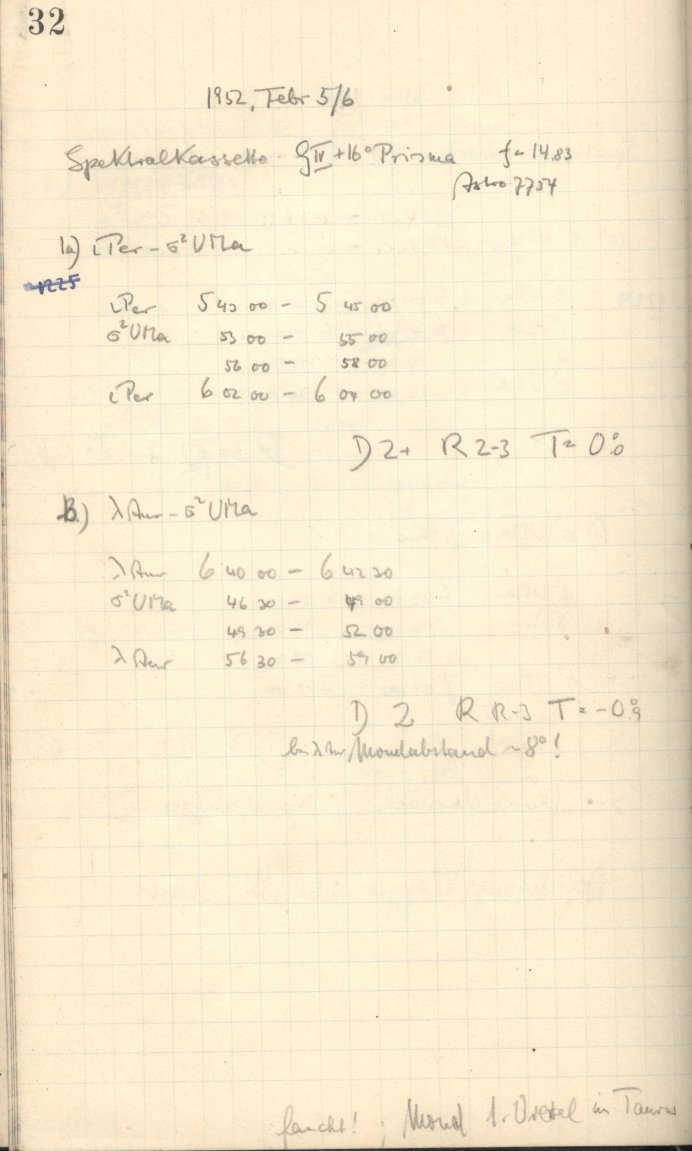 32
1952, Febr 5/6
Spektralkassette GIV+16° Prisma f = 14.83
Astro 7754
1a) ι Per - σ² UMa
1225
ι Per 5 43 00 - 5 45 00
σ² UMa 53 00 - 55 00
56 00 - 58 00
ι Per 6 02 00 - 6 04 00
D 2+ R 2-3 T = 0.°0
B.) λ Aur - σ² UMa
λ Aur 6 40 00 - 6 42 30
σ² UMa 46 30 - 49 00
49 30 - 52 00
λ Aur 56 30 - 59 00
D 2 R 2-3 T = -0.°9
bei λ Aur Mondabstand ~8°!
feucht! ; Mond 1. Viertel in Taurus